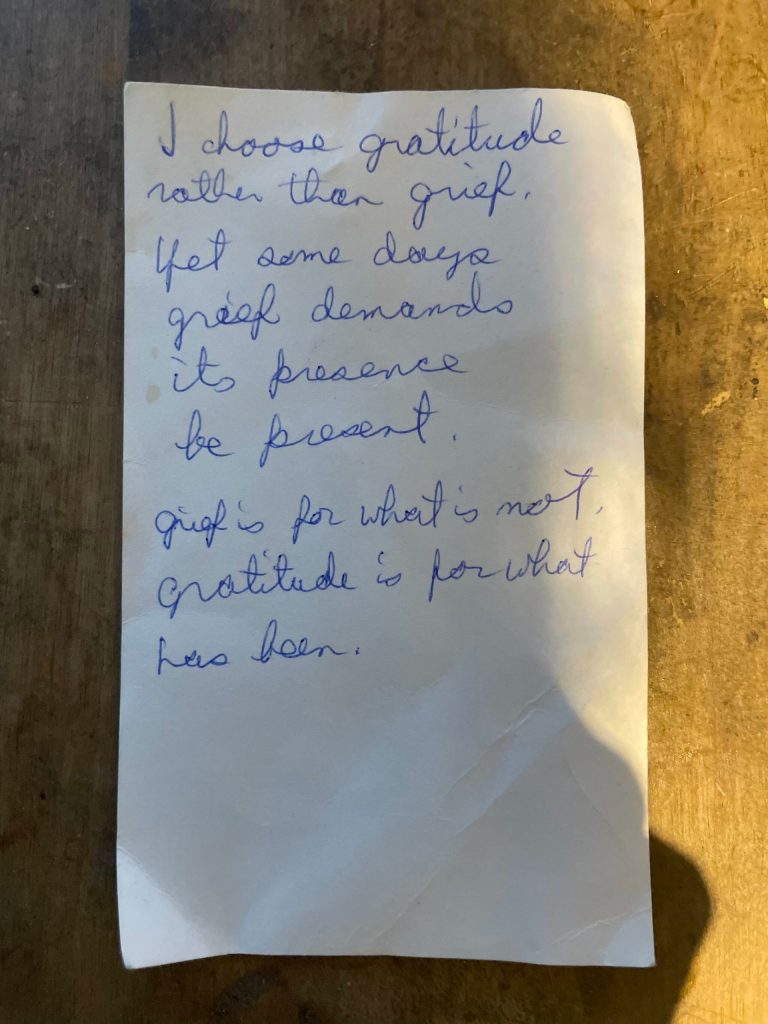 I choose gratitude
rather than grief.
Yet some days
grief demands
its presence
be present.
grief is for what is not.
Gratitude is for what
has been.